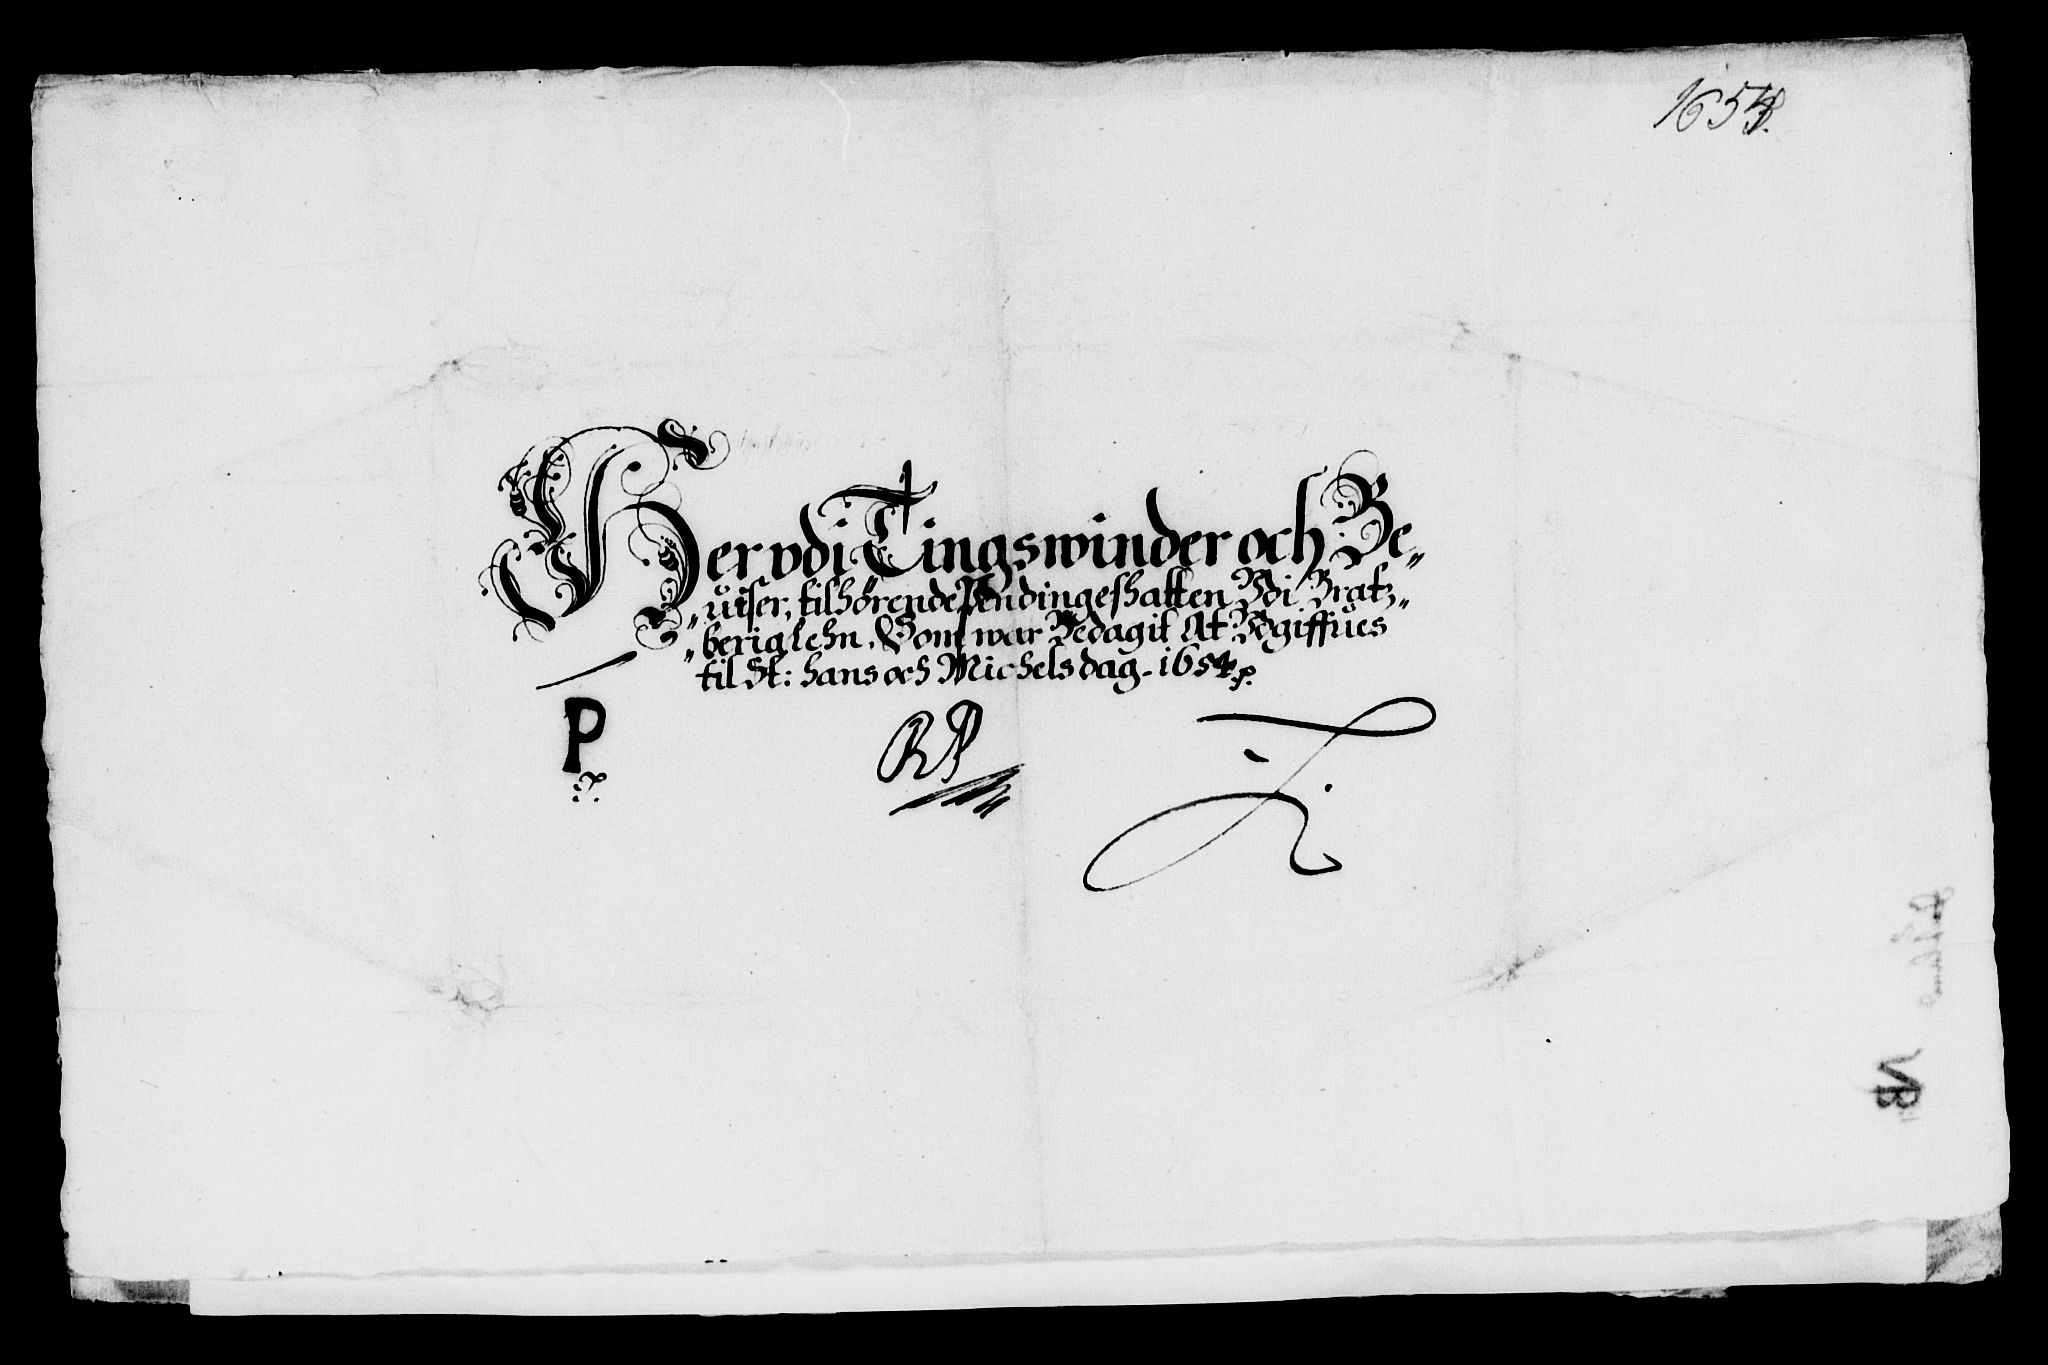 1654
Her vdi Tingswinder och Be„
„uiser, tilhørende Pendingeshatten Vdi Bratz„
„berig Lehn, Som war Bedagit At Vdgiffues
til St: Hans och Michels dag. 1654.
P
RP